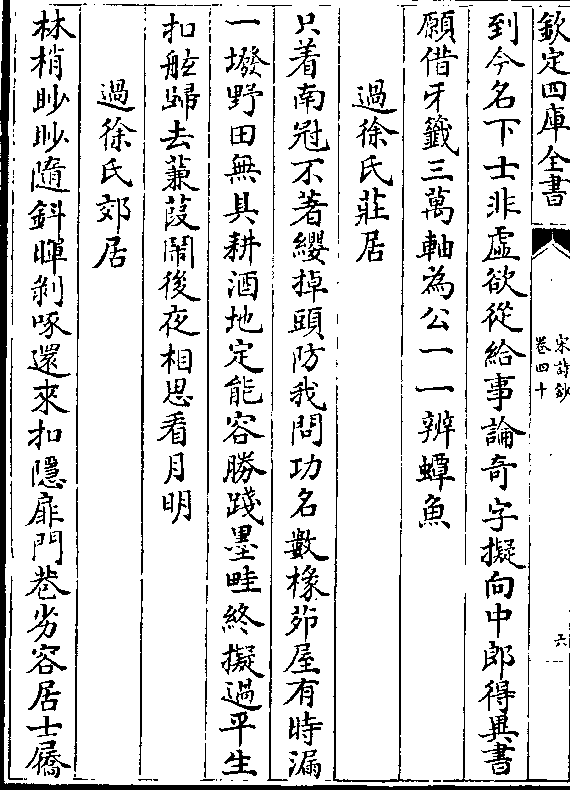 欽定四庫全書
宋詩鈔
卷四十
六
到今名下士非虚欲從給事論奇字擬向中郎得異書
願借牙籤三萬軸為公一一辨蟫魚
過徐氏莊居
只着南冠不著纓掉頭防我問功名數椽茆屋有時漏
一墢野田無具耕酒地定能容勝踐墨畦終擬過平生
扣舷歸去蒹葭閙後夜相思看月明
過徐氏郊居
林梢眇眇隨斜暉剝啄還來扣隱扉門巷劣容居士屩